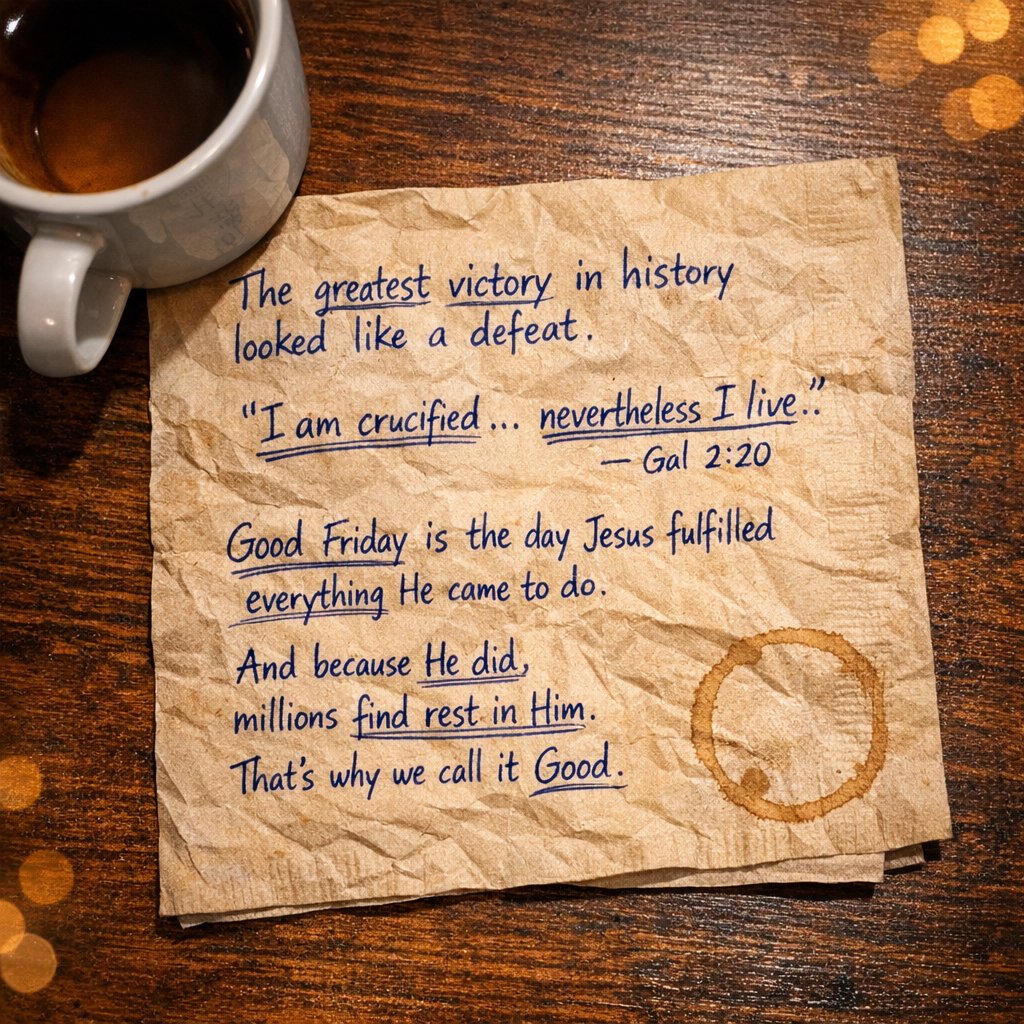 The greatest victory in history
looked like a defeat.
“I am crucified... nevertheless I live..”
— Gal 2:20
Good Friday is the day Jesus fulfilled
everything He came to do.
And because He did,
millions find rest in Him.
That's why we call it Good.